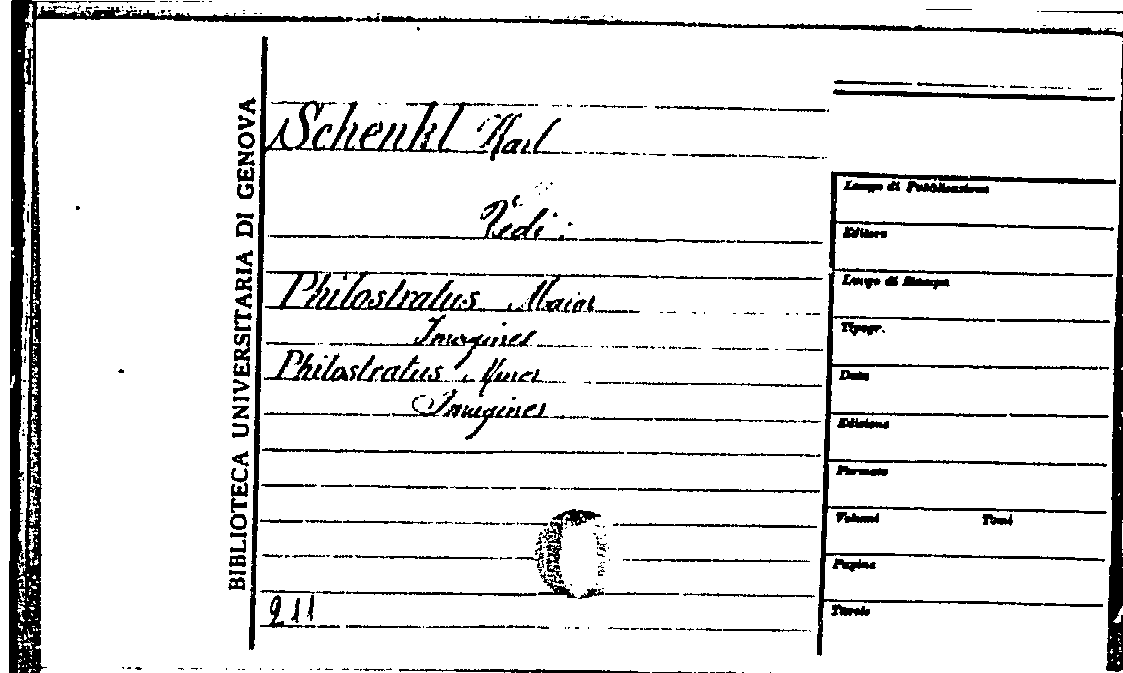 BIBLIOTECA UNIVERSITARIA DI GENOVA
Schenkl Karl
Vedi:
Philostratus Maior
Imagines
Philostratus Minor
Imagines
211
Luogo di Pubblicazione
Editore
Luogo di Stampa
Tipogr.
Data
Edizione
Formato
Volumi Tomi
Pagine
Tavole